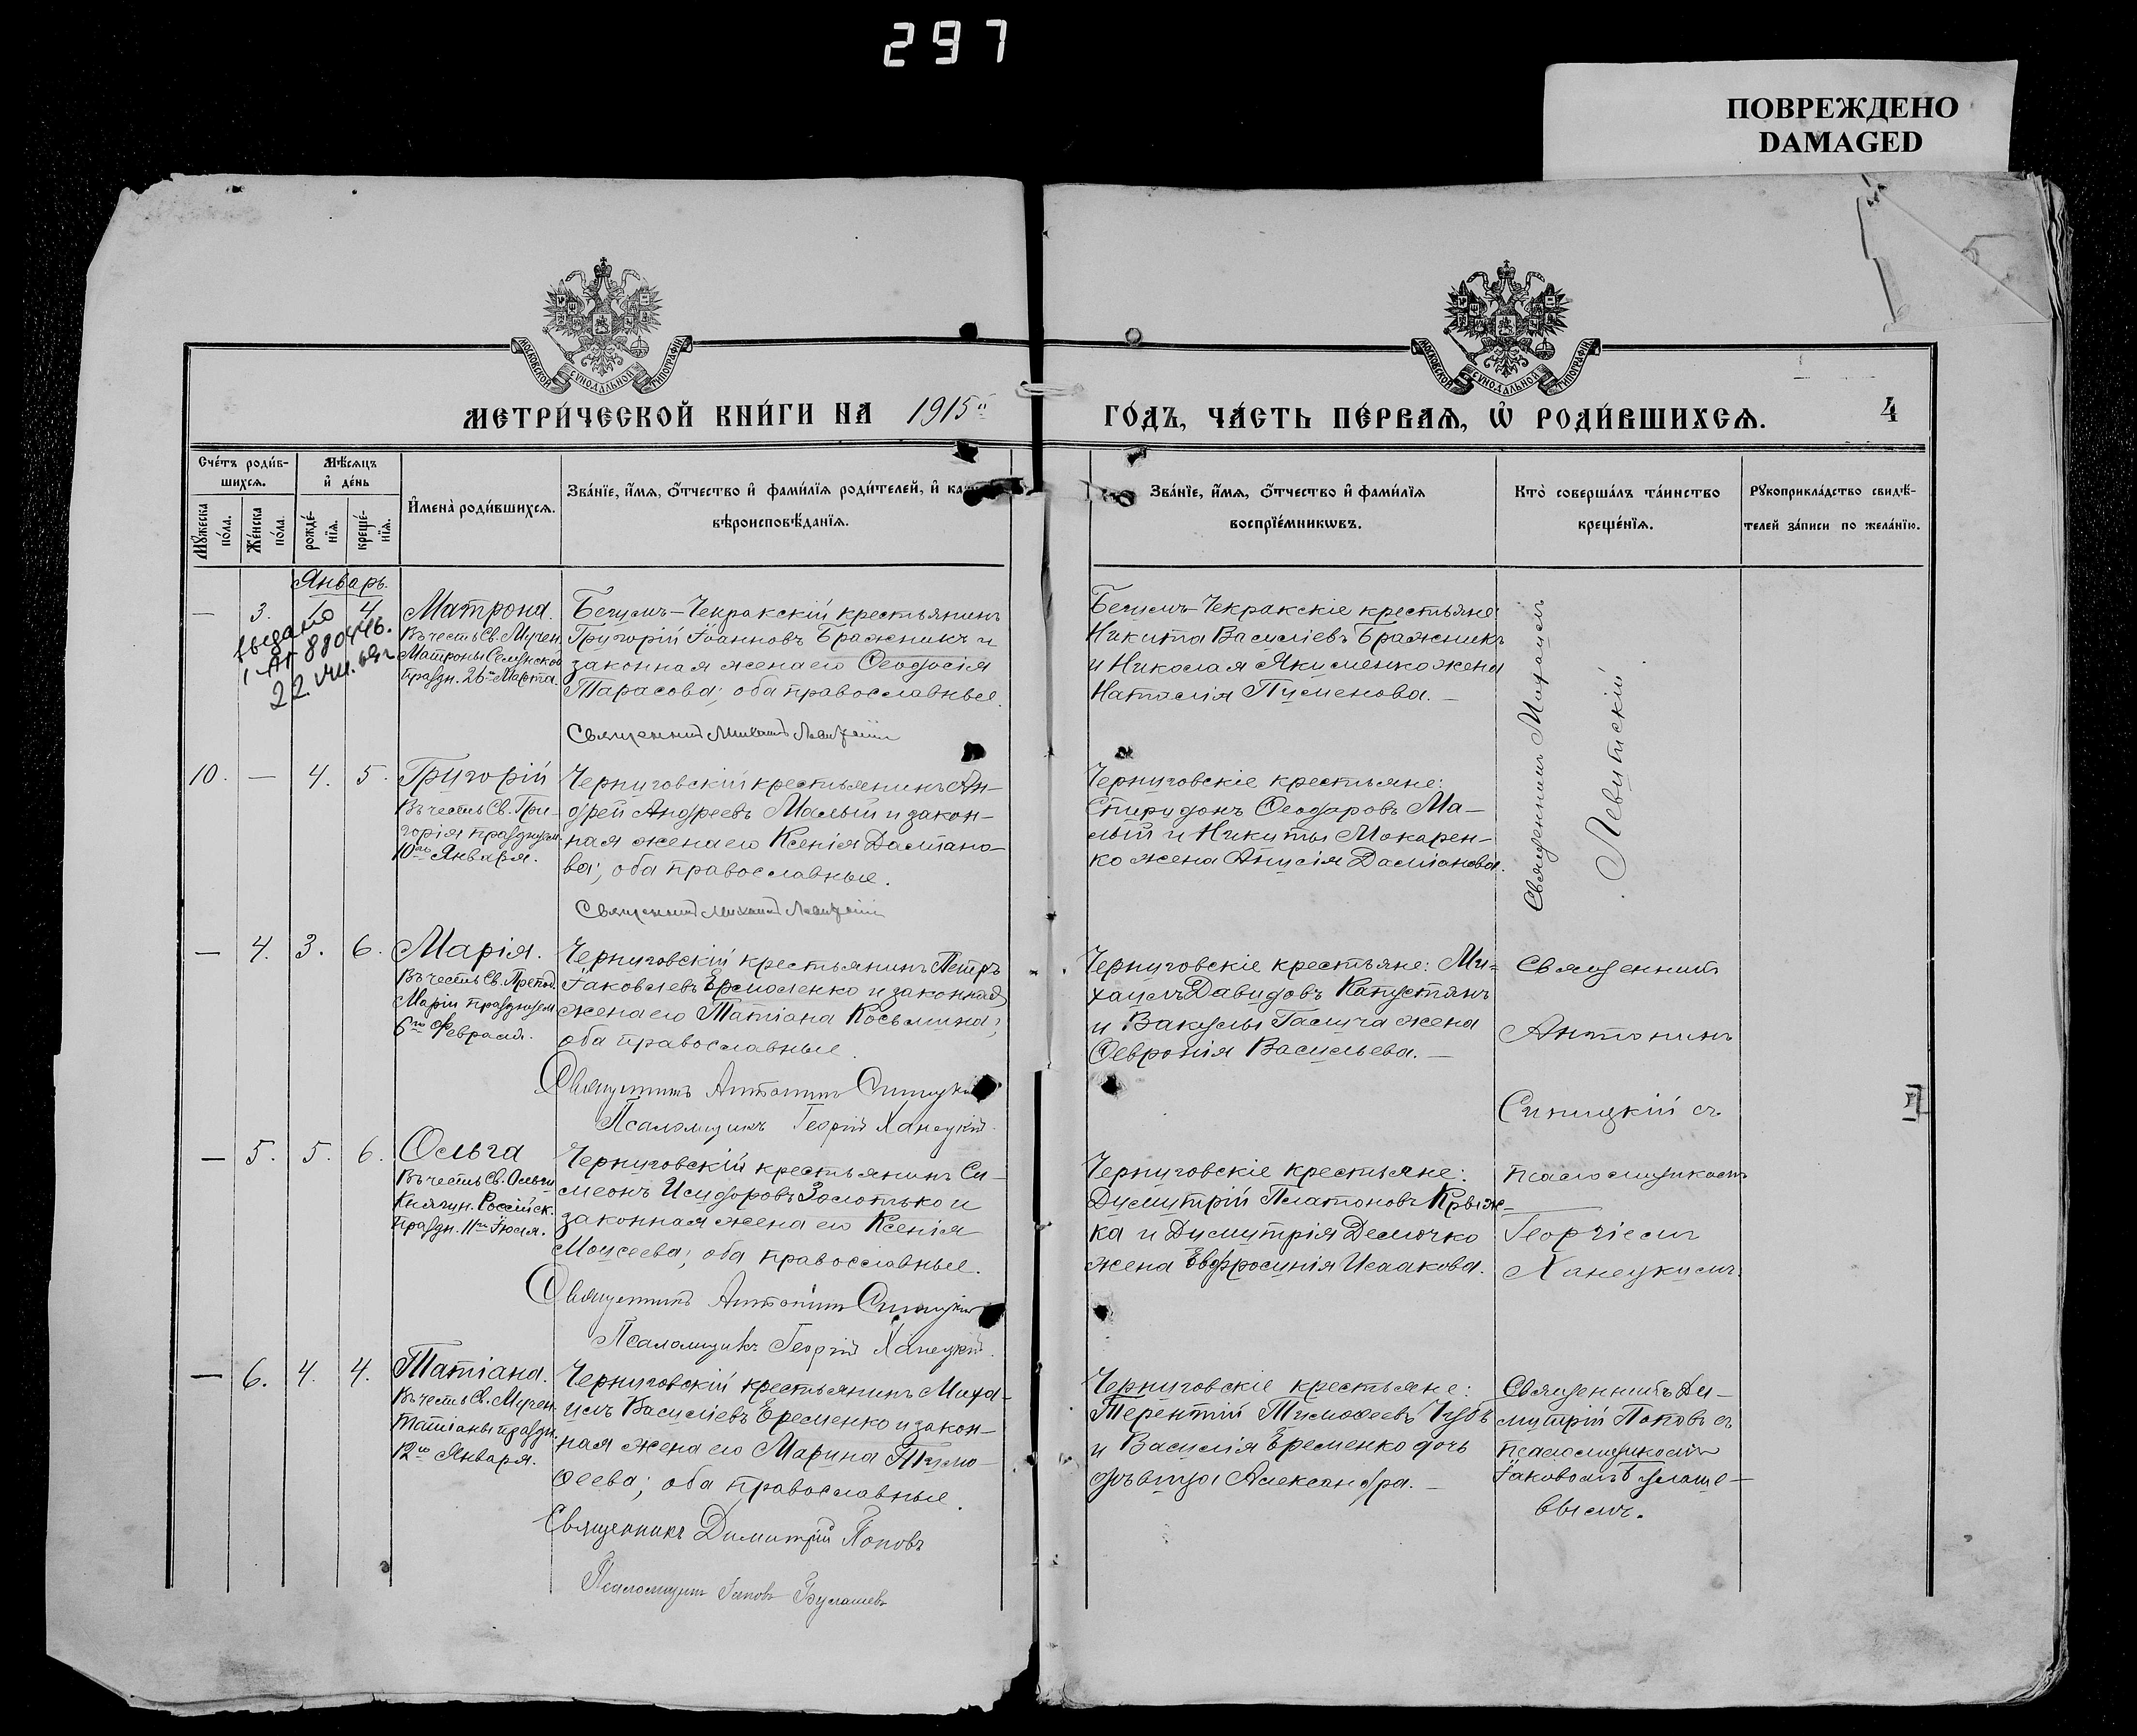 297
ПОВРЕЖДЕНО
DAMAGED
МОСКОВСКОЙ СѴНОДАЛЬНОЙ ТИПОГРАФІИ
МОСКОВСКОЙ СѴНОДАЛЬНОЙ ТИПОГРАФІИ
МЕТРИ́ЧЕСКОЙ КНИ́ГИ НА 1915й
ГО́ДЪ, ЧА́СТЬ ПЕ́РВАѦ, Ѡ҆ РОДИ́ВШИХСѦ.
4
Сче́тъ роди́в-
шихсѧ.
Мѣ́сѧцъ
и҆ де́нь
Мꙋ́жеска
по́ла.
Же́нска
по́ла.
рожде́-
нїѧ.
креще́-
нїѧ.
И҆мена̀ роди́вшихсѧ.
Зва́нїе, и҆́мѧ, ѻ҆́тчество и҆ фами́лїѧ роди́телей, и҆
вѣроисповѣ́данїѧ.
Зва́нїе, и҆́мѧ, ѻ҆́тчество и҆ фами́лїѧ
воспрїе́мникѡвъ.
Кто̀ соверша́лъ та́инство
креще́нїѧ.
Рꙋкоприкла́дство свидѣ́-
телей за́писи по жела́нїю.
Январь.
— 3. 4.
Матрона.
Въ честь Св. Мучен.
Матроны Селунской
праздн. 26го Марта.
выдано
880446.
22
Бегимъ-Чекракскій крестьянинъ
Григорій Іоанновъ Бражникъ и
законная жена его Ѳеодосія
Тарасова; оба православные.
Священникъ Михаилъ Левитскій
Бегимъ-Чекракскіе крестьяне:
Никита Василіевъ Бражникъ
и Николая Якименко жена
Наталія Пименова. —
Священникъ Михаилъ
Левитскій.
10. — 4. 5.
Григорій
Въ честь Св. Гри-
горія празднуем.
10го Января.
Черниговскій крестьянинъ Ан-
дрей Андреевъ Малый и закон-
ная жена его Ксенія Даміано-
ва; оба православные.
Священникъ Михаилъ Левитскій
Черниговскіе крестьяне:
Спиридонъ Ѳеодоровъ Ма-
лый и Никиты Макарен-
ко жена Анисія Даміанова.
— 4. 3. 6.
Марія.
Въ честь Св. Препод.
Маріи празднуем.
6го Февраля.
Черниговскій крестьянинъ Петръ
Іаковлевъ Ермоленко и законная
жена его Татіана Косьмина;
оба православные.
Священникъ Антонинъ Синицкій
Псаломщикъ Георгій Ханецкій.
Черниговскіе крестьяне: Ми-
хаилъ Давидовъ Капустянъ
и Вакулы Галича жена
Ѳевронія Васильева. —
Священникъ
Антонинъ
Синицкій съ
— 5. 5. 6.
Ольга
Въ честь Св. Ольги
Княгин. Россійск.
праздн. 11го Іюля.
Черниговскій крестьянинъ Си-
меонъ Исидоровъ Золотько и
законная жена его Ксенія
Моисеева; оба православные.
Священникъ Антонинъ Синицкій
Псаломщикъ Георгій Ханецкій.
Черниговскіе крестьяне:
Димитрій Платоновъ Крыж-
ка и Димитрія Демочко
жена Евфросинія Исаакова.
псаломщикомъ
Георгіемъ
Ханецкимъ.
— 6. 4. 4.
Татіана.
Въ честь Св. Мучен.
Татіаны праздн.
12го Января.
Черниговскій крестьянинъ Миха-
илъ Василіевъ Еременко и закон-
ная жена его Марина Тимо-
ѳеева; оба православные.
Священникъ Димитрій Поповъ
Псаломщикъ Іаковъ Булашевъ
Черниговскіе крестьяне:
Терентій Тимоѳеевъ Чубъ
и Василія Еременко дочь
дѣвица Александра. —
Священникъ Ди-
митрій Поповъ съ
псаломщикомъ
Іаковомъ Булаше-
вымъ.